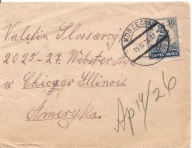 Valentin Slosarczy
2020-27. Webster Str
w Chicago Illinois
Ameryka.
Ap 14/26
30